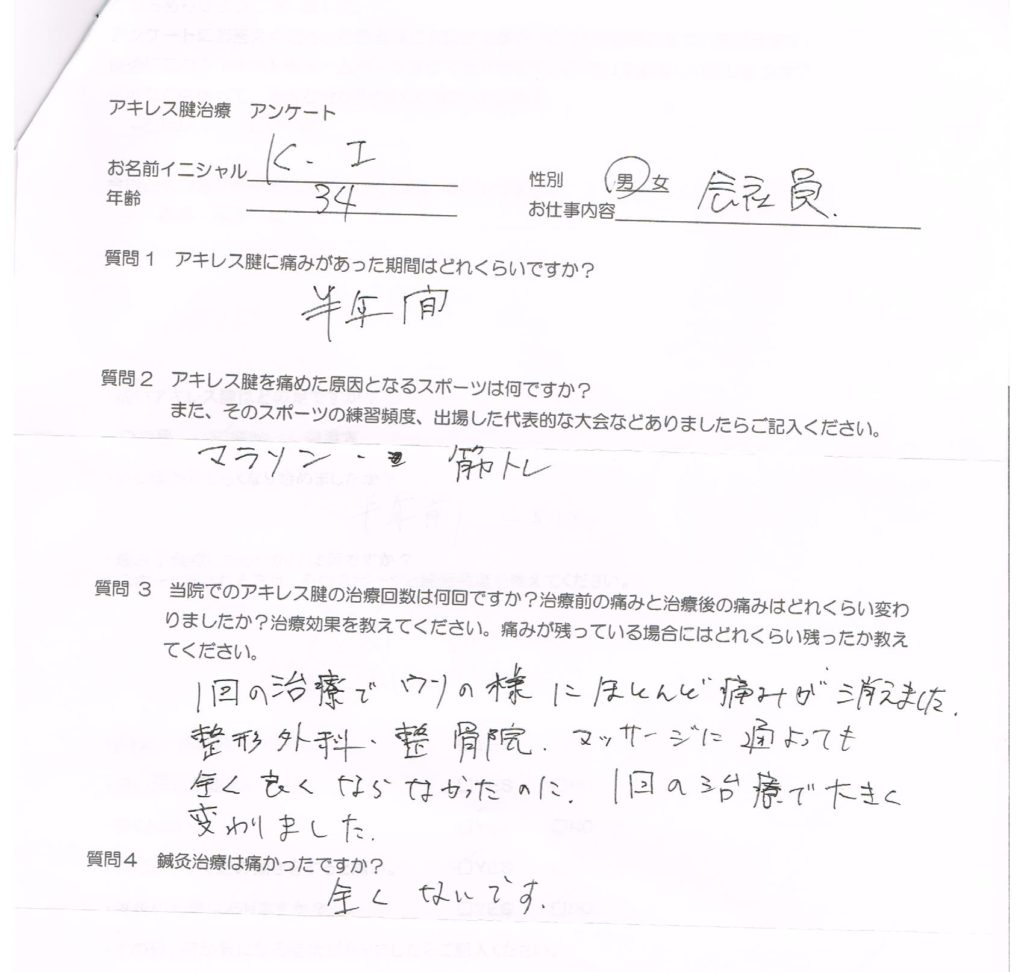 アキレス腱治療 アンケート
お名前イニシャル K. I
性別 男 女
年齢 34
お仕事内容 会社員.
質問1 アキレス腱に痛みがあった期間はどれくらいですか?
半年間
質問2 アキレス腱を痛めた原因となるスポーツは何ですか?
また、そのスポーツの練習頻度、出場した代表的な大会などありましたらご記入ください。
マラソン・筋トレ
質問3 当院でのアキレス腱の治療回数は何回ですか?治療前の痛みと治療後の痛みはどれくらい変わ
りましたか?治療効果を教えてください。痛みが残っている場合にはどれくらい残ったか教え
てください。
1回の治療でウソの様にほとんど痛みが消えました.
整形外科・整骨院.マッサージに通よっても
全く良くならなかったのに.1回の治療で大きく
変わりました.
質問4 鍼灸治療は痛かったですか?
全くないです.